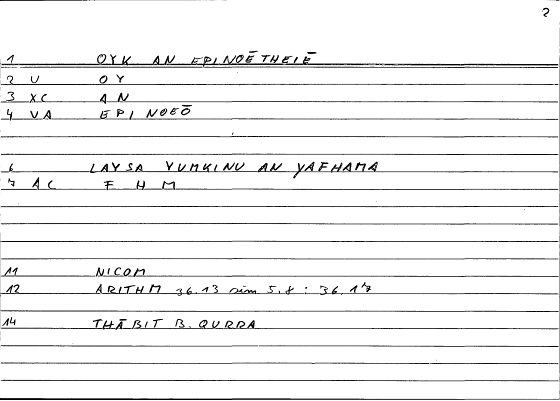 2
1 OYK AN EPINOĒTHEIĒ
2 U OY
3 XC AN
4 VA EPINOEŌ
6 LAYSA YUMKINU AN YAFHAMA
7 AC F H M
11 NICOM
12 ARITHM 36.13 sim 5.8 : 36.17
14 THĀBIT B. QURRA